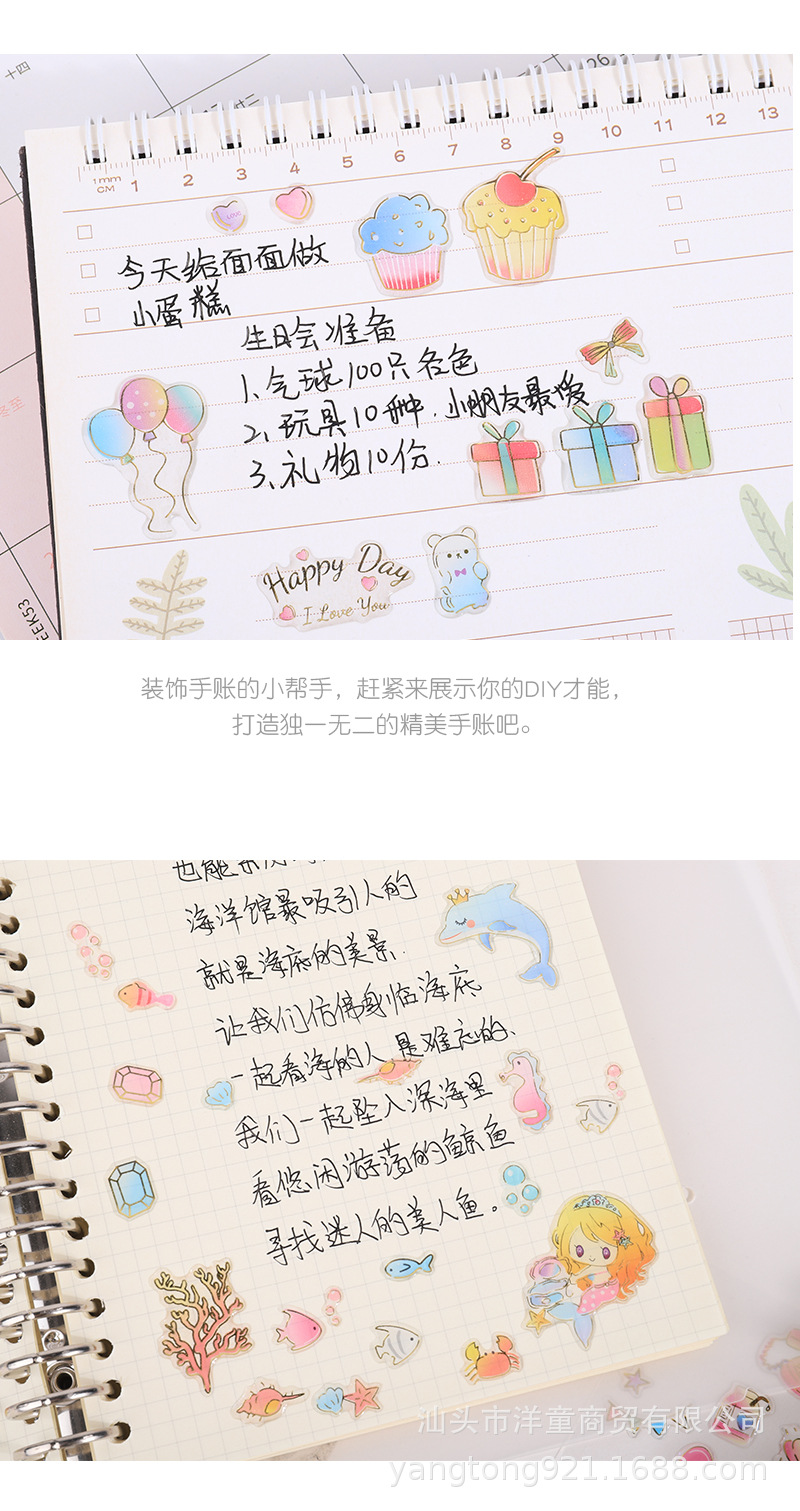 十四
26
1mm
CM 1 2 3 4 5 6 7 8 9 10 11 12 13
LOVE
今天给面面做
小蛋糕
生日会准备
1、气球100只各色
2、玩具10种.小朋友最爱
3、礼物10份.
冬至
Happy Day
I Love You
EEK53
装饰手账的小帮手，赶紧来展示你的DIY才能，
打造独一无二的精美手账吧。
海洋馆最吸引人的
就是海底的美景.
让我们仿佛身临海底
一起看海的人是难忘的、
我们一起坠入深海里
看悠闲游荡的鲸鱼
寻找迷人的美人鱼。
汕头市洋童商贸有限公司
yangtong921.1688.com